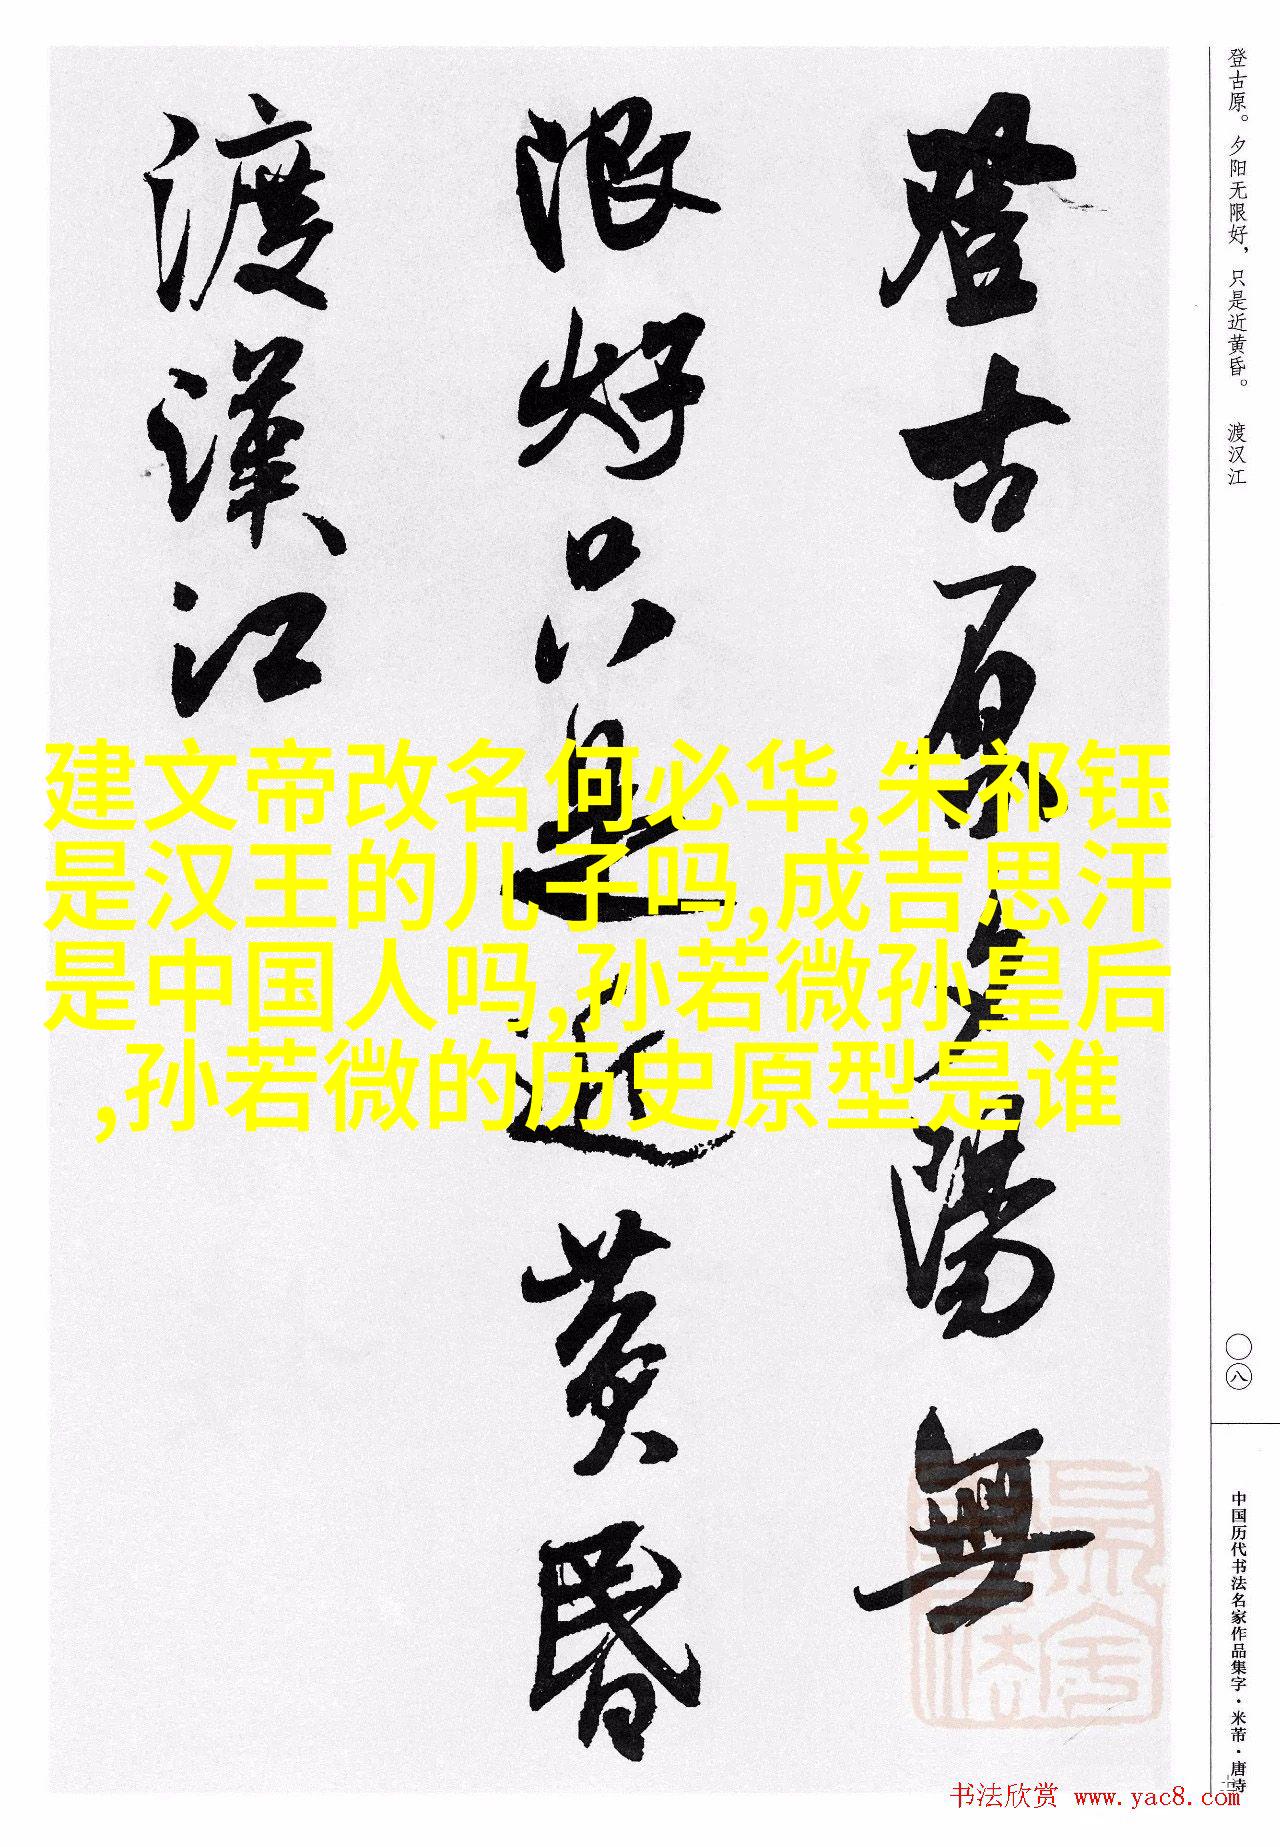 登古原夕陽無
限好只是近黄昏
渡漢江
登古原。夕阳无限好，只是近黄昏。 渡汉江
〇八
中国历代书法名家作品集字·米芾·唐诗
建文帝改名何必华,朱祁钰
是汉王的儿子吗,成吉思汗
是中国人吗,孙若微孙皇后
,孙若微的历史原型是谁
书法欣赏 www.yac8.com